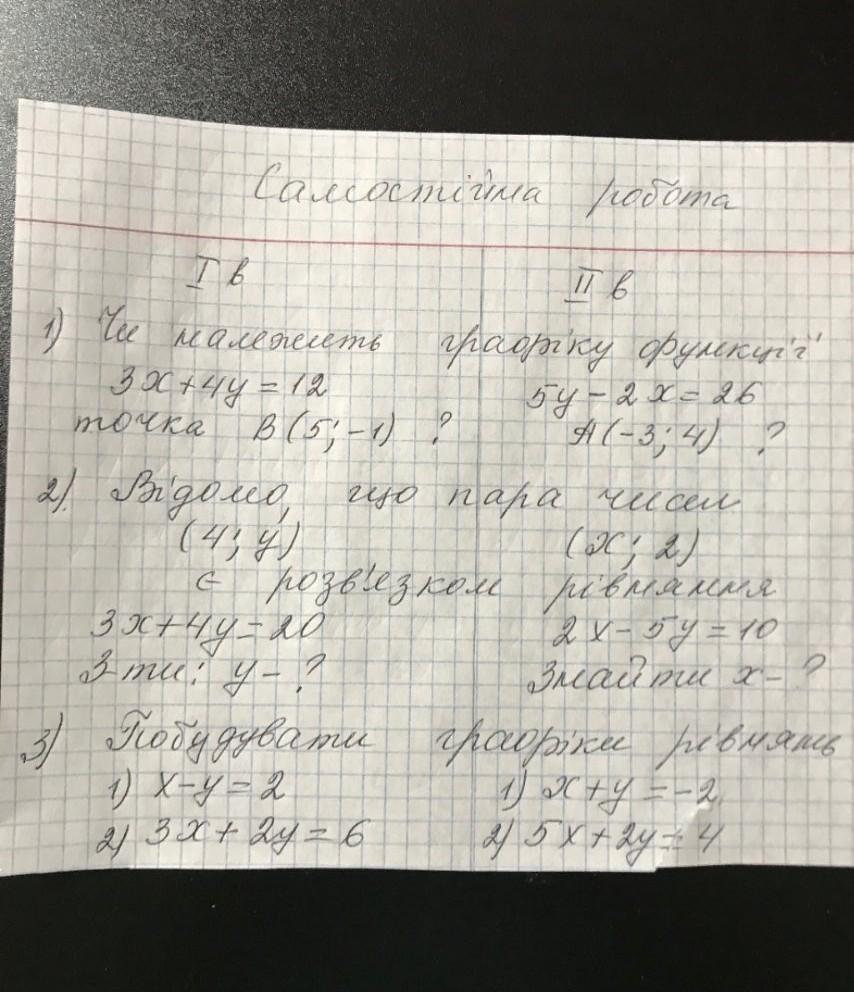 Самостійна робота
І в ІІ в
1) Чи належить графіку функції
3x+4y=12 5y-2x=26
точка B(5;-1) ? A(-3;4) ?
2) Відомо, що пара чисел
(4; y) (x; 2)
є розв'язком рівняння
3x+4y=20 2x-5y=10
З-ти: y-? Знайти x-?
3) Побудувати графіки рівнянь
1) x-y=2 1) x+y=-2
2) 3x+2y=6 2) 5x+2y=4